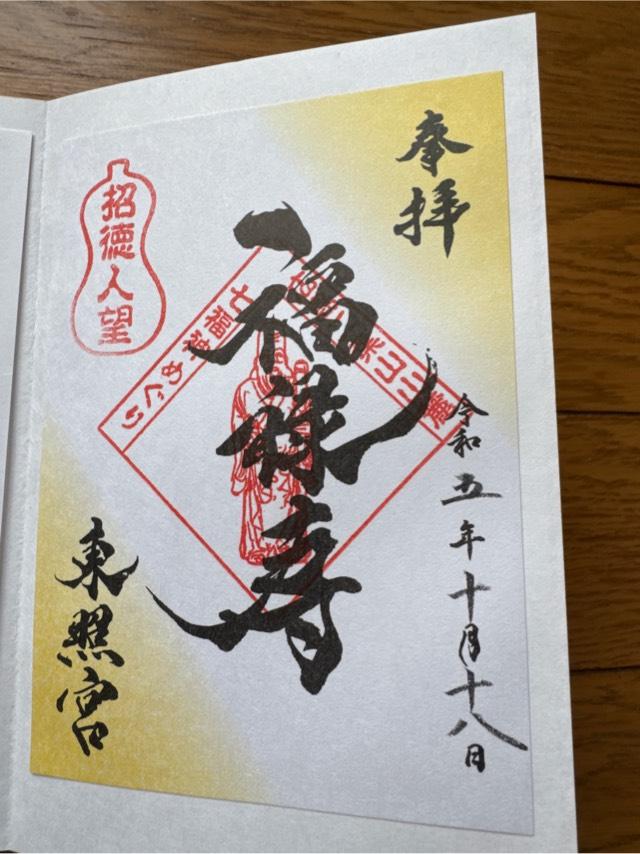 奉拝
福禄寿
令和五年十月十八日
東照宮
招徳人望
七福神めぐり